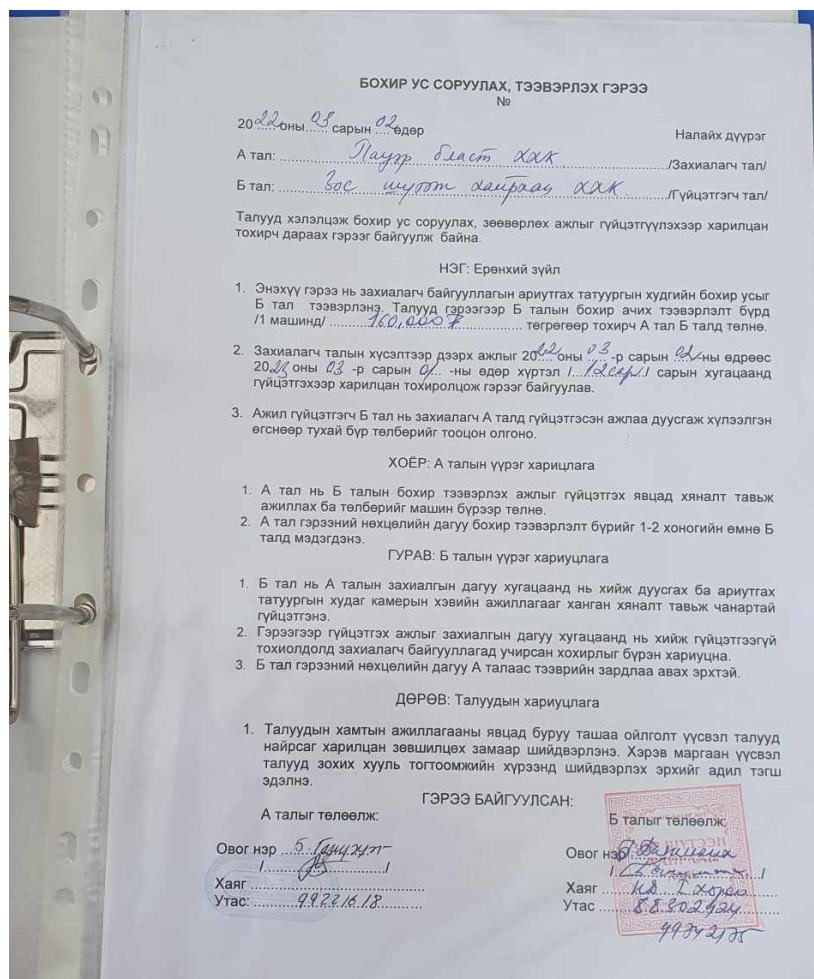 БОХИР УС СОРУУЛАХ, ТЭЭВЭРЛЭХ ГЭРЭЭ
№
2022 оны 03 сарын 02 өдөр
Налайх дүүрэг
А тал: Пауэр бласт ХХК /Захиалагч тал/
Б тал: Зос шүтээн хайрхан ХХК /Гүйцэтгэгч тал/
Талууд хэлэлцэж бохир ус соруулах, зөөвөрлөх ажлыг гүйцэтгүүлэхээр харилцан
тохирч дараах гэрээг байгуулж байна.
НЭГ: Ерөнхий зүйл
1. Энэхүү гэрээ нь захиалагч байгууллагын ариутгах татуургын худгийн бохир усыг
Б тал тээвэрлэнэ. Талууд гэрээгээр Б талын бохир ачих тээвэрлэлт бүрд
/1 машинд/ 160,000₮ төгрөгөөр тохирч А тал Б талд төлнө.
2. Захиалагч талын хүсэлтээр дээрх ажлыг 2022 оны 03 -р сарын 02 -ны өдрөөс
2023 оны 03 -р сарын 01 -ны өдөр хүртэл /...12 сар.../ сарын хугацаанд
гүйцэтгэхээр харилцан тохиролцож гэрээг байгуулав.
3. Ажил гүйцэтгэгч Б тал нь захиалагч А талд гүйцэтгэсэн ажлаа дуусгаж хүлээлгэн
өгснөөр тухай бүр төлбөрийг тооцон олгоно.
ХОЁР: А талын үүрэг харицлага
1. А тал нь Б талын бохир тээвэрлэх ажлыг гүйцэтгэх явцад хяналт тавьж
ажиллах ба төлбөрийг машин бүрээр төлнө.
2. А тал гэрээний нөхцөлийн дагуу бохир тээвэрлэлт бүрийг 1-2 хоногийн өмнө Б
талд мэдэгдэнэ.
ГУРАВ: Б талын үүрэг хариуцлага
1. Б тал нь А талын захиалгын дагуу хугацаанд нь хийж дуусгах ба ариутгах
татуургын худаг камерын хэвийн ажиллагааг ханган хяналт тавьж чанартай
гүйцэтгэнэ.
2. Гэрээгээр гүйцэтгэх ажлыг захиалгын дагуу хугацаанд нь хийж гүйцэтгээгүй
тохиолдолд захиалагч байгууллагад учирсан хохирлыг бүрэн хариуцна.
3. Б тал гэрээний нөхцөлийн дагуу А талаас тээврийн зардлаа авах эрхтэй.
ДӨРӨВ: Талуудын хариуцлага
1. Талуудын хамтын ажиллагааны явцад буруу ташаа ойлголт үүсвэл талууд
найрсаг харилцан зөвшилцөх замаар шийдвэрлэнэ. Хэрэв маргаан үүсвэл
талууд зохих хууль тогтоомжийн хүрээнд шийдвэрлэх эрхийг адил тэгш
эдэлнэ.
ГЭРЭЭ БАЙГУУЛСАН:
А талыг төлөөлж:
Овог нэр
Хаяг
Утас: 99221618
Б талыг төлөөлж:
Овог нэр
Хаяг НД 1 хороо
Утас 88802924
99742175